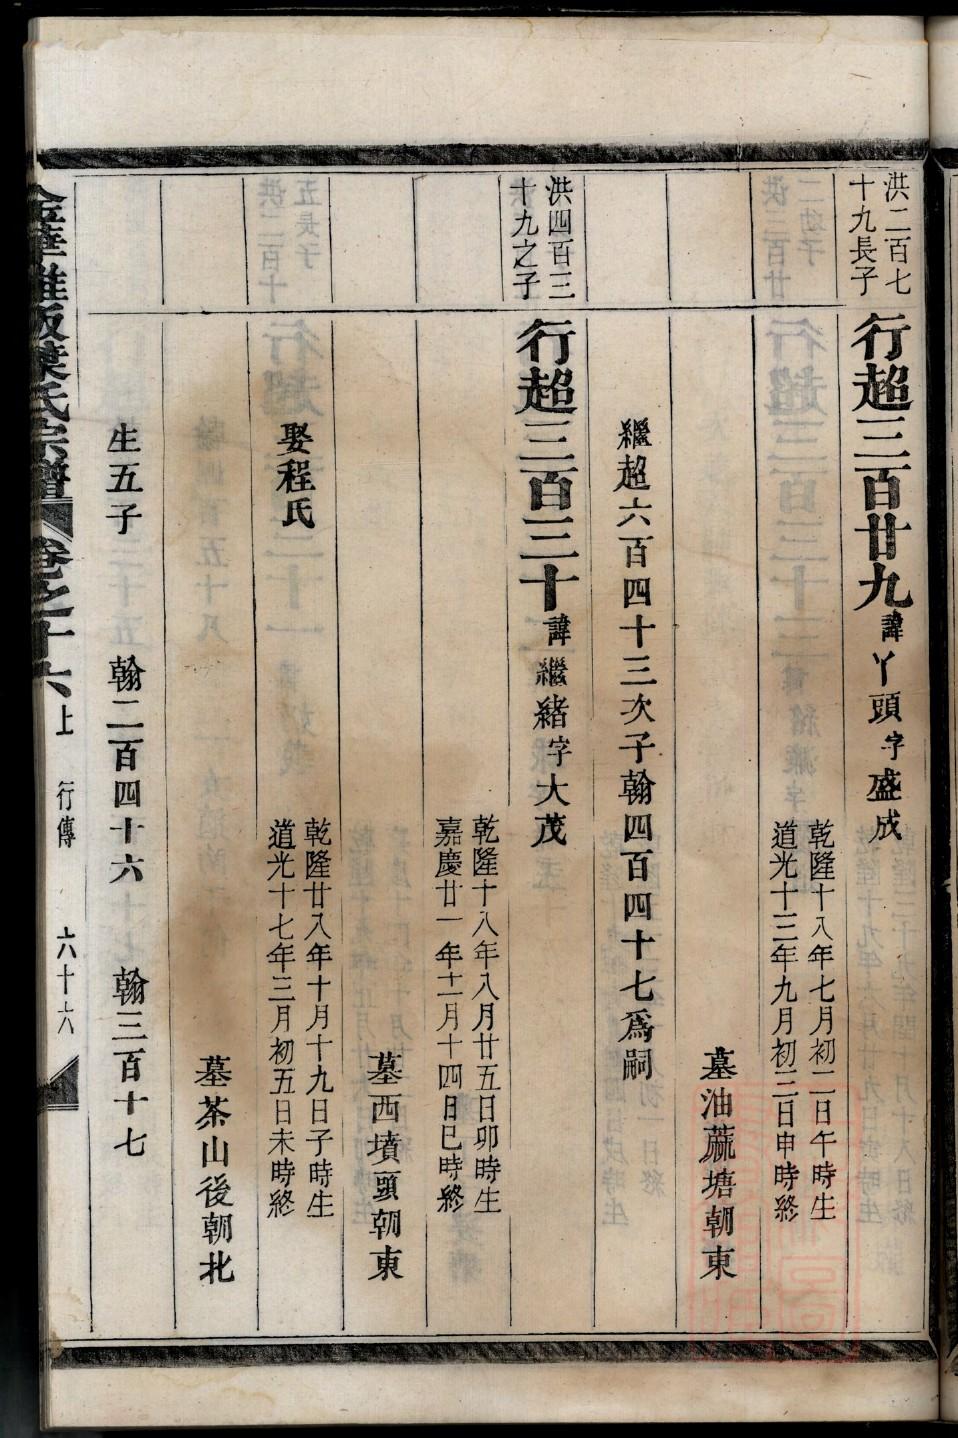 洪二百七
十九長子
行超三百廿九諱丫頭字盛成
乾隆十八年七月初二日午時生
道光十三年九月初三日申時終
墓油蔴塘朝東
繼超六百四十三次子翰四百四十七爲嗣
洪四百三
十九之子
行超三百三十諱繼緒字大茂
乾隆十八年八月廿五日卯時生
嘉慶廿一年十一月十四日巳時終
墓西墳頭朝東
娶程氏
乾隆廿八年十月十九日子時生
道光十七年三月初五日未時終
墓茶山後朝北
生五子 翰二百四十六 翰三百十七
葉氏宗譜 卷之十六上 行傳 六十六